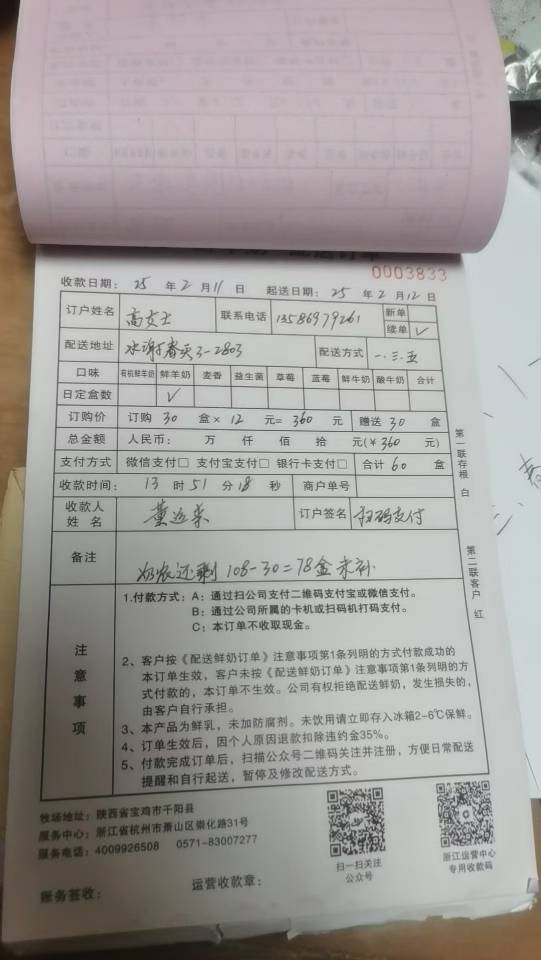 配送订单
0003833
收款日期: 25 年 2 月 11 日 起送日期: 25 年 2 月 12 日
订户姓名 高女士 联系电话 13586979261 新单
续单 ✓
配送地址 3-2803 配送方式 一.三.五
口味 有机鲜羊奶 鲜羊奶 麦香 益生菌 草莓 蓝莓 鲜牛奶 酸牛奶 合计
日定盒数 ✓
订购价 订购 30 盒× 12 元= 360 元 赠送 30 盒
总金额 人民币: 万 仟 佰 拾 元(¥ 360 元)
支付方式 微信支付□ 支付宝支付□ 银行卡支付□ 合计 60 盒
收款时间: 13 时 51 分 18 秒 商户单号
收款人
姓 名 订户签名 扫码支付
备注 还剩 108-30=78盒
第一联存根 白
第二联客户 红
注意事项
1.付款方式: A: 通过扫公司支付二维码支付宝或微信支付。
B: 通过公司所属的卡机或扫码机打码支付。
C: 本订单不收取现金。
2、客户按《配送鲜奶订单》注意事项第1条列明的方式付款成功的
本订单生效，客户未按《配送鲜奶订单》注意事项第1条列明的方
式付款的，本订单不生效。公司有权拒绝配送鲜奶，发生损失的，
由客户自行承担。
3、本产品为鲜乳，未加防腐剂。未饮用请立即存入冰箱2-6℃保鲜。
4、订单生效后，因个人原因退款扣除违约金35%。
5、付款完成订单后，扫描公众号二维码关注并注册，方便日常配送
提醒和自行起送，暂停及修改配送方式。
牧场地址: 陕西省宝鸡市千阳县
服务中心: 浙江省杭州市萧山区崇化路31号
服务电话: 4009926508 0571-83007277
扫一扫关注
公众号
浙江运营中心
专用收款码
账务签收: 运营收款章: